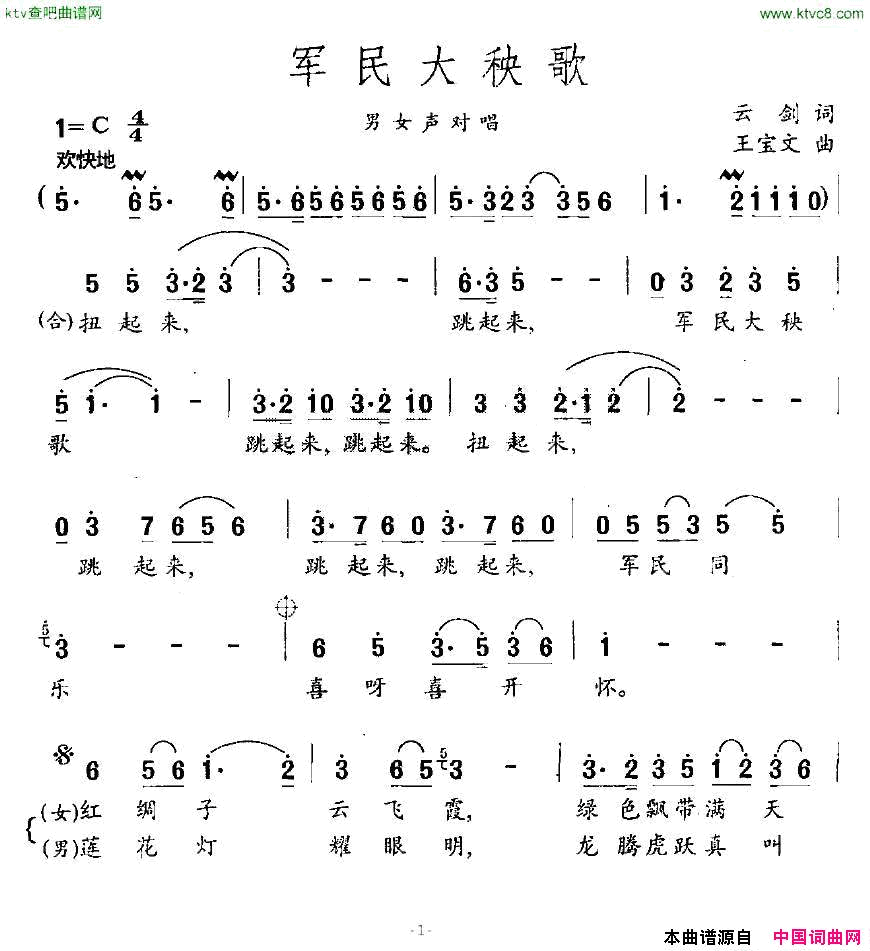 ktv查吧曲谱网 www.ktvc8.com
军民大秧歌
1=C 4/4 男女声对唱 云剑词
欢快地 王宝文曲
(5· 6 5· 6 | 5·6 56 56 56 | 5·3 23 35 6 | 1· 2 11 10) |
5 5 3·2 3 | 3 - - | 6·3 5 - - | 0 3 2 3 5
(合)扭起来, 跳起来, 军民大秧
5 1· 1 - | 3·2 10 3·2 10 | 3 3 2·1 2 | 2 -
歌 跳起来,跳起来。扭起来,
0 3 7 6 5 6 | 3· 7 60 3· 7 60 | 05 53 5 5
跳起来, 跳起来,跳起来, 军民同
5 3 - - - | 6 5 3·5 36 | 1 - - |
乐 喜呀喜开怀。
6 56 1· 2 | 3 65 5 3 - | 3·2 35 12 36 |
(女)红绸子云飞霞, 绿色飘带满天
(男)莲花灯耀眼明, 龙腾虎跃真叫
-1-
本曲谱源自 中国词曲网